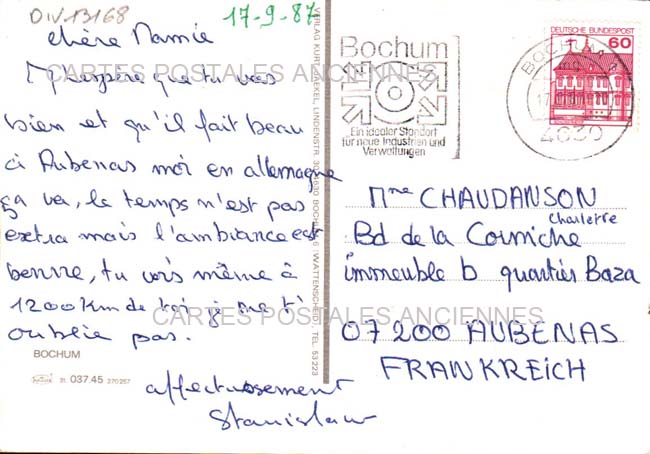 DIV13168
17-9-87
chère Mamie
J'espère que tu vas
bien et qu'il fait beau
à Aubenas moi en allemagne
ça va, le temps n'est pas
extra mais l'ambiance est
bonne, tu vois même à
1200Km de toi je ne t'
oublie pas.
affectueusement
Stanislaw
BOCHUM
21 037.45 270257
VERLAG KURT JAEKEL, LINDENSTR. 30, 4630 BOCHUM 6 (WATTENSCHEID), TEL. 53 223
Bochum
Ein idealer Standort
für neue Industrien und
Verwaltungen
BOCHUM
4630
DEUTSCHE BUNDESPOST
60
Mme CHAUDANSON
Charlette
Bd de la Corniche
immeuble b quartier Baza
07200 AUBENAS
FRANKREICH
CARTES POSTALES ANCIENNES
CARTES POSTALES ANCIENNES